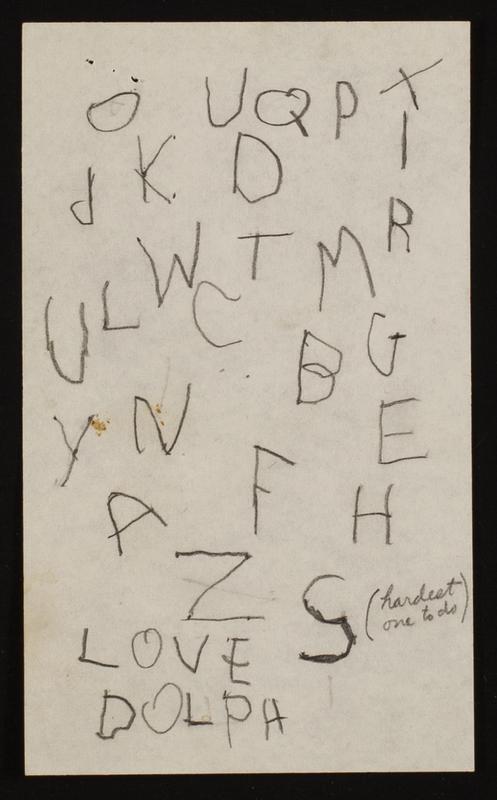 O U Q P X
J K D I
W T M R
U L C B G
Y N E
A F H
Z S (hardest one to do)
LOVE
DOLPH